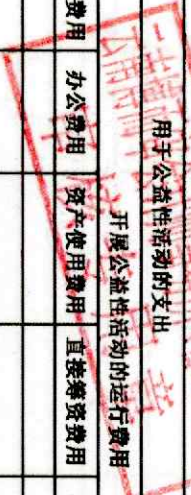 用于公益性活动的支出
开展公益性活动的运行费用
费用 办公费用 资产使用费用 直接筹资费用